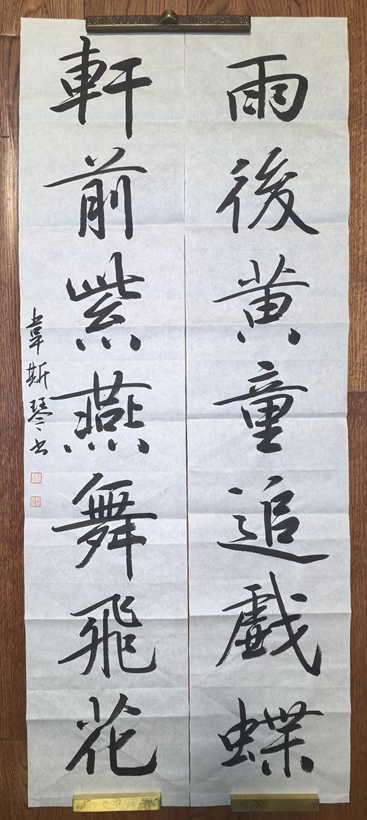 雨後黄童追戲蝶
軒前紫燕舞飛花
韋斯琴书